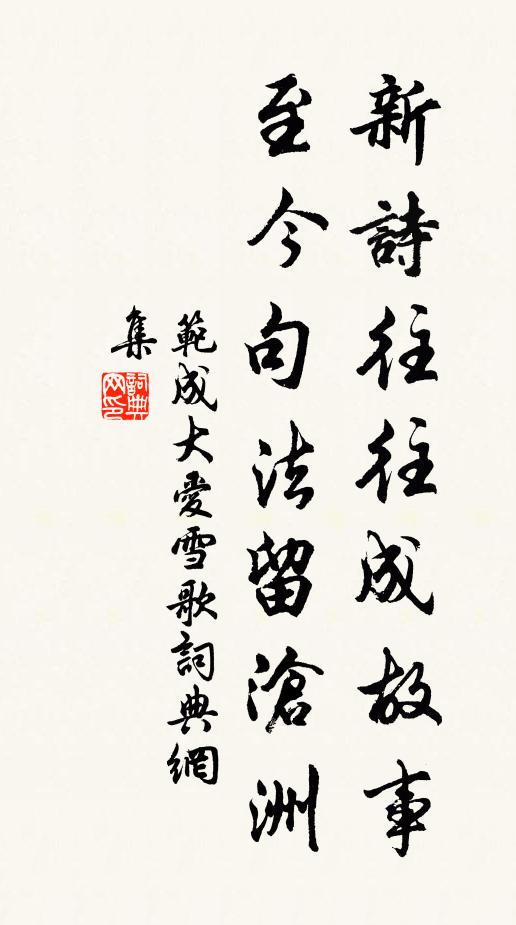 新詩往往成故事
至今句法留滄洲
範成大愛雪歌詞典網
集
詞典网印